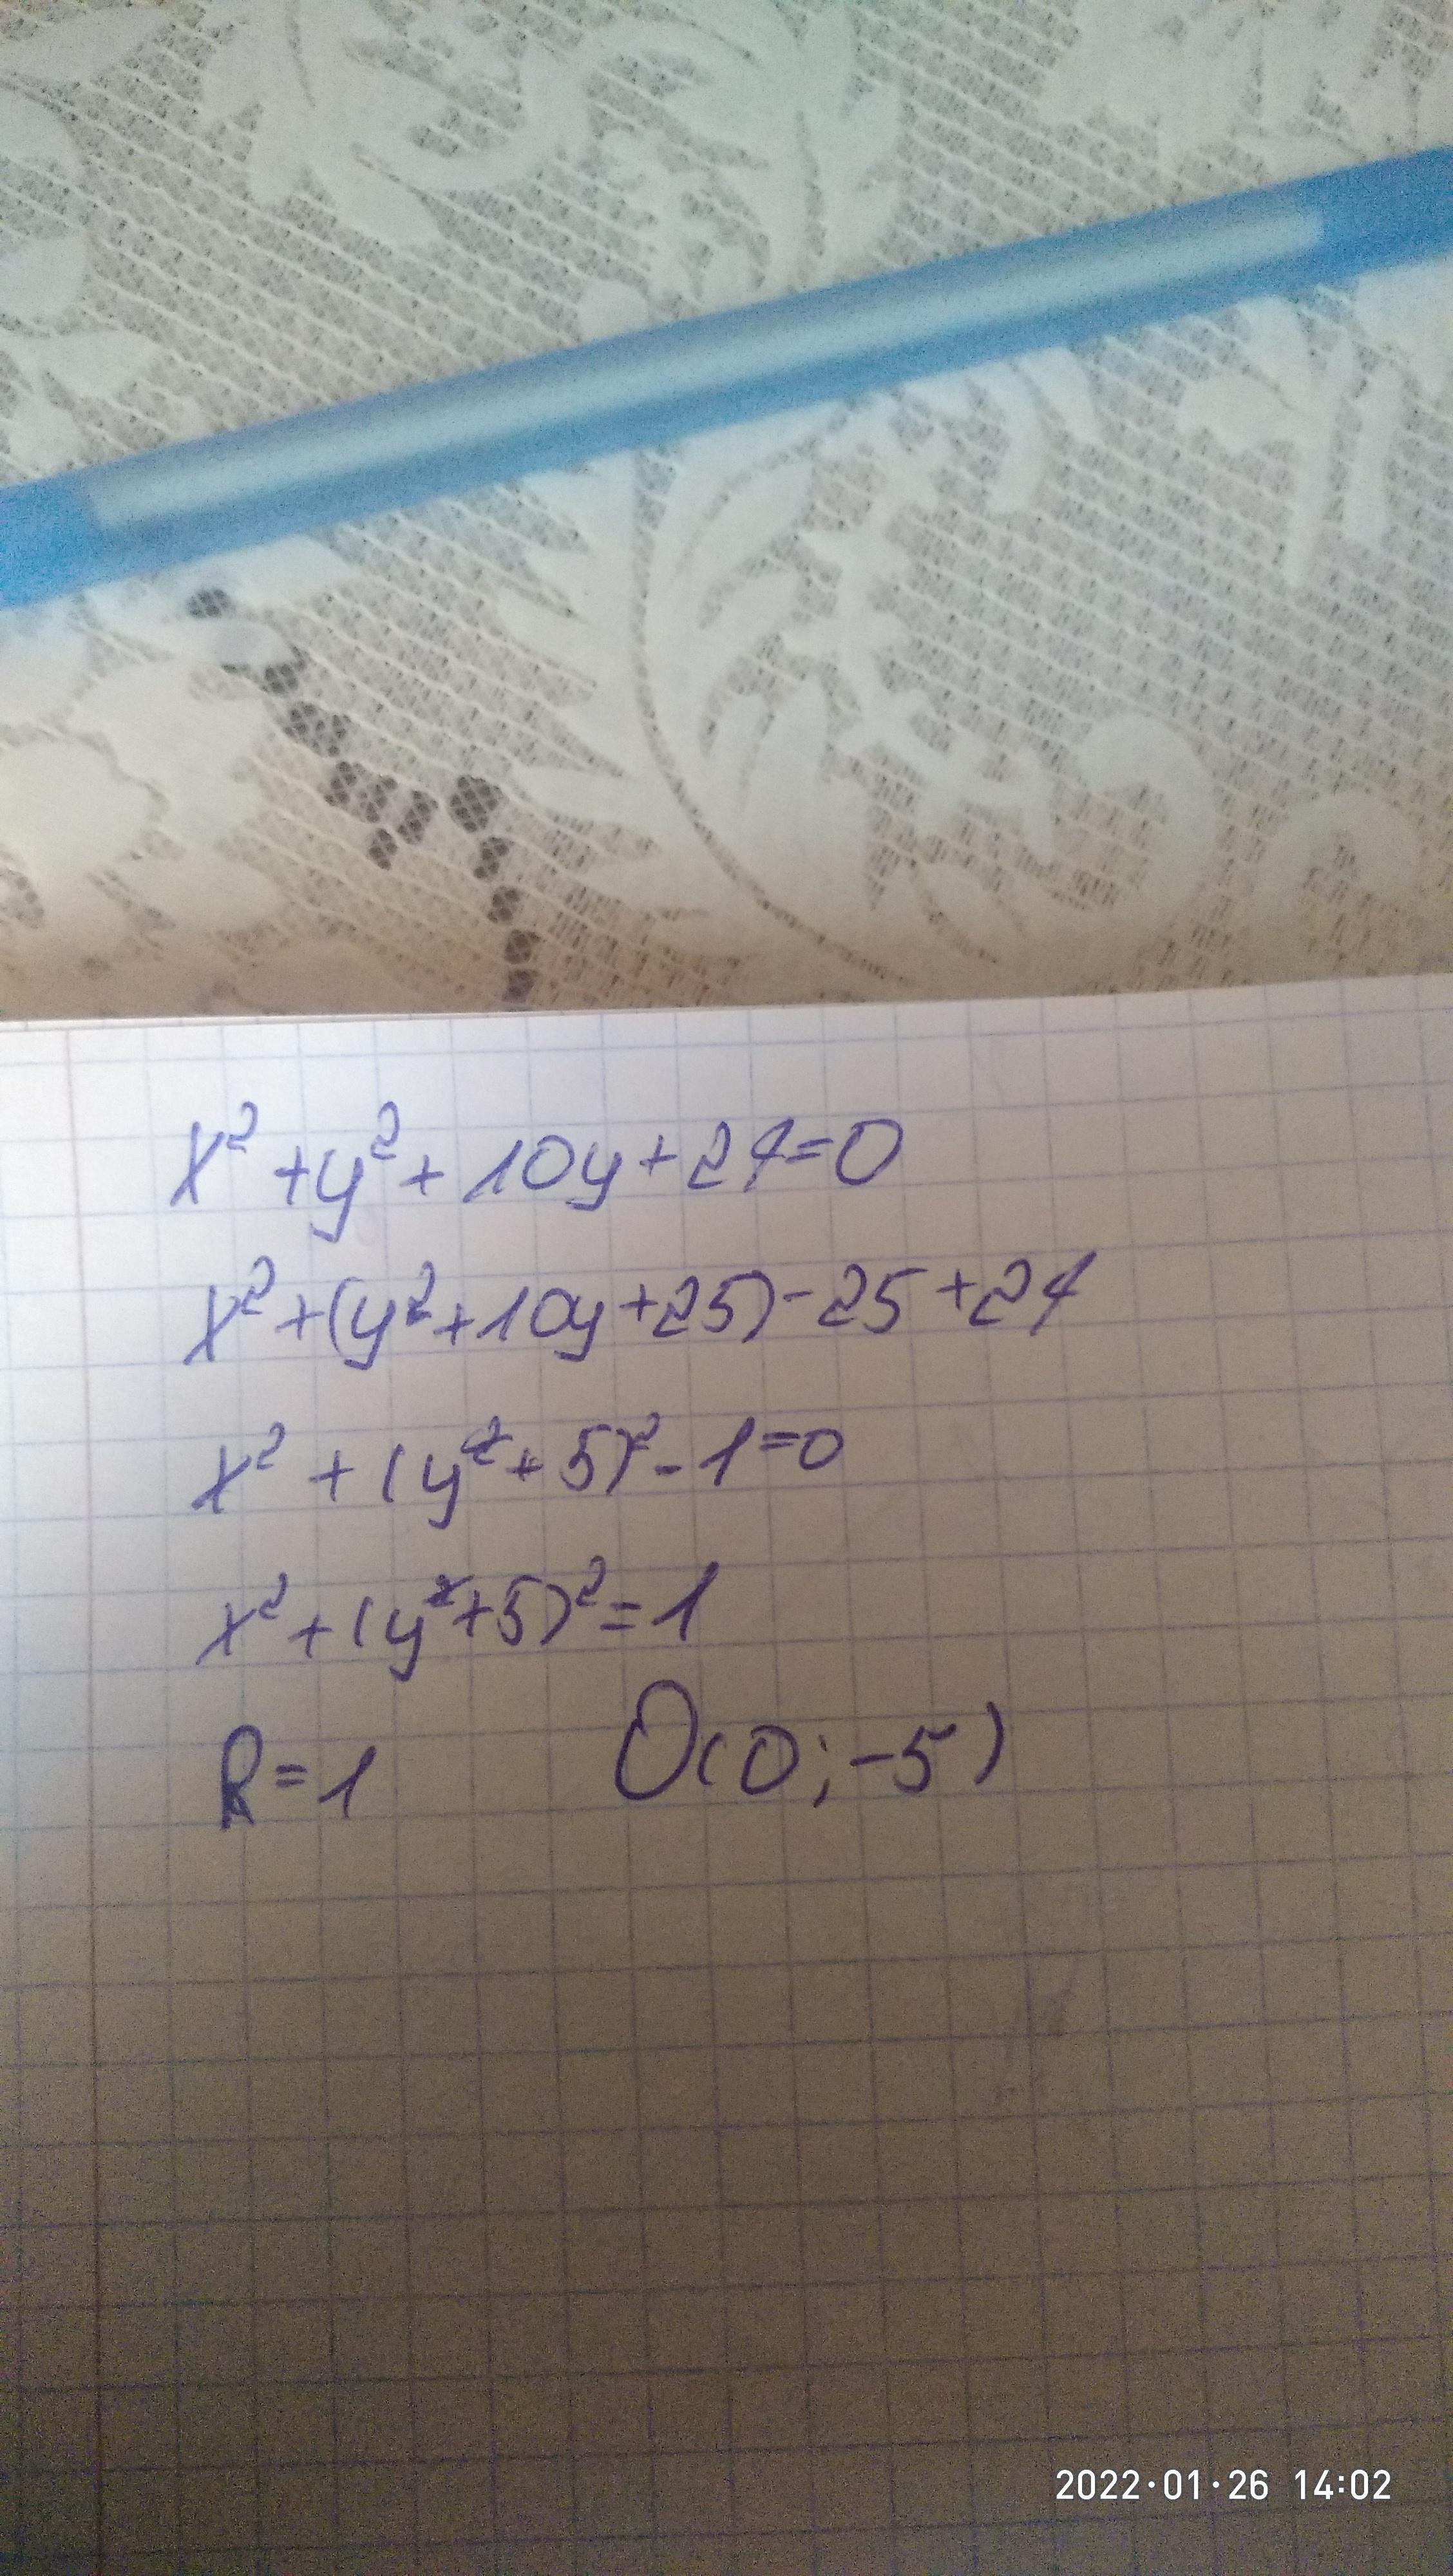 x² + y² + 10y + 24 = 0
x² + (y² + 10y + 25) - 25 + 24
x² + (y + 5)² - 1 = 0
x² + (y + 5)² = 1
R = 1 O(0; -5)
2022·01·26 14:02